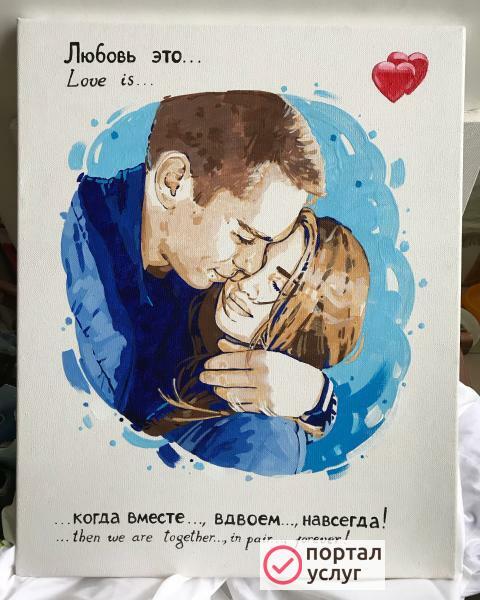 Любовь это...
Love is...
...когда вместе..., вдвоем..., навсегда!
...then we are together.., in pair..., forever!
портал
услуг